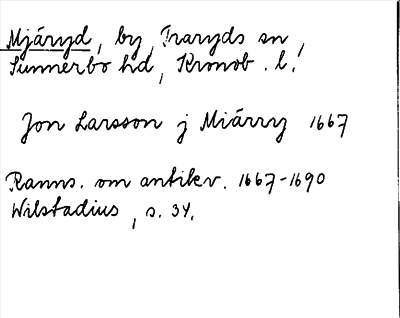 Mjäryd, by, Traryds sn,
Sunnerbo hd, Kronob. l.
Jon Larsson j Miärry 1667
Ranns. om antikv. 1667-1690
Wilstadius, s. 34.